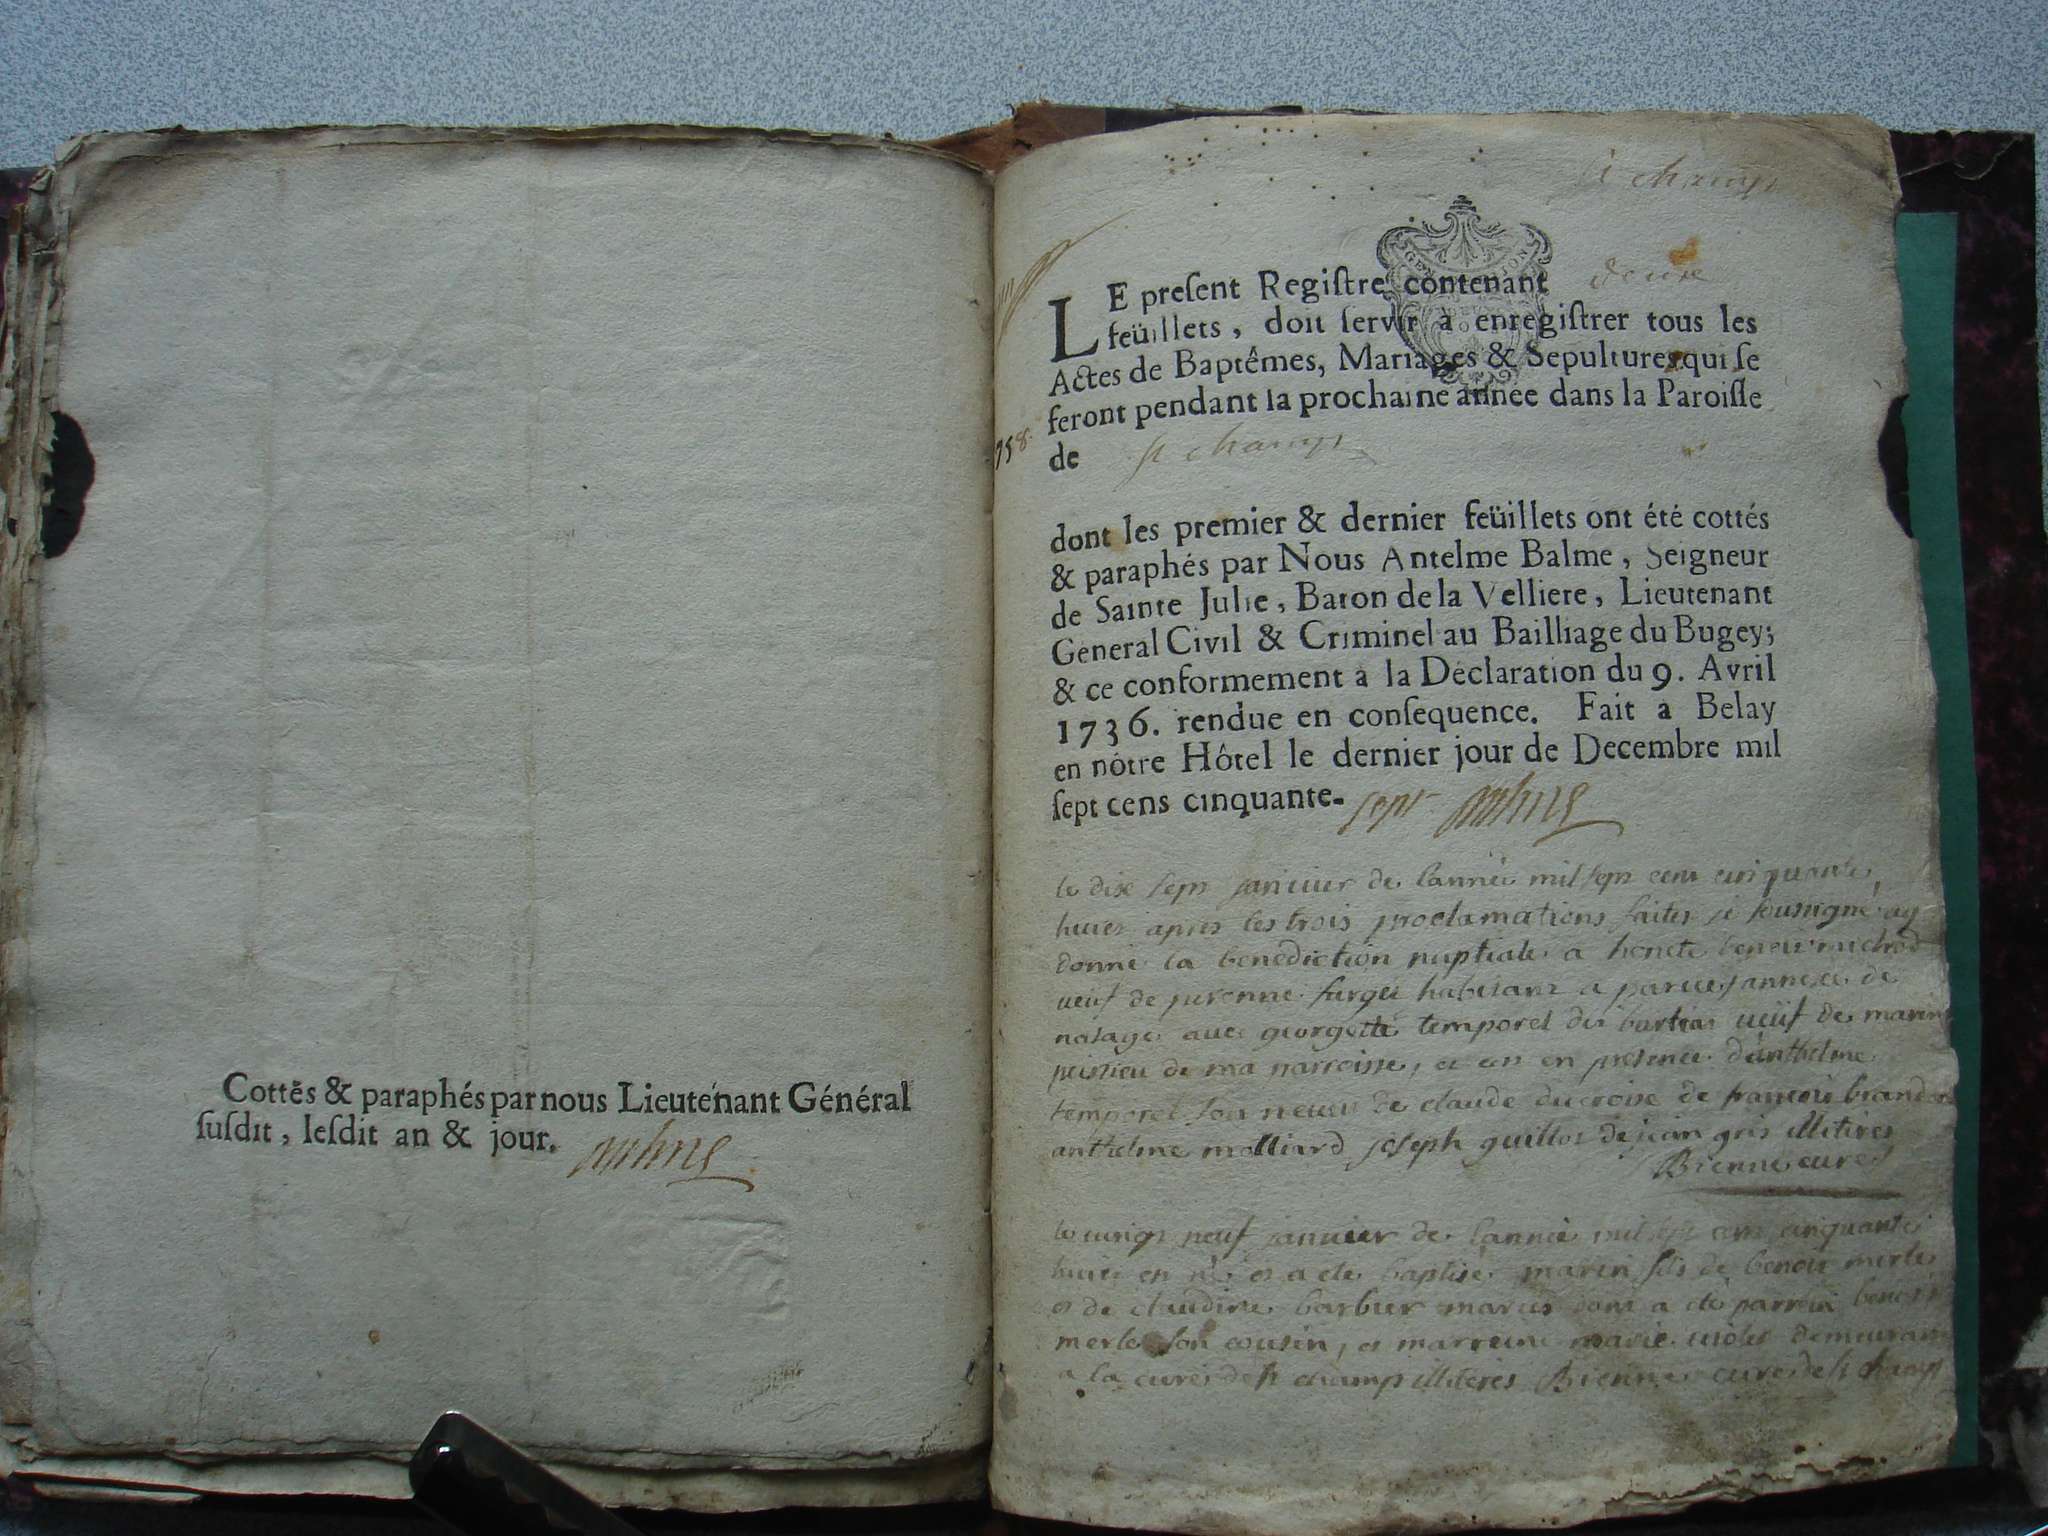 Cottés & paraphés par nous Lieutenant Général
suſdit, leſdit an & jour.
st champ
LE preſent Regiſtre contenant deux
feüillets, doit ſervir à enregiſtrer tous les
Actes de Baptêmes, Mariages & Sepultures qui ſe
feront pendant la prochaine année dans la Paroiſſe
1758.
de st champ
dont les premier & dernier feüillets ont été cottés
& paraphés par Nous Antelme Balme, Seigneur
de Sainte Julie, Baron de la Velliere, Lieutenant
Géneral Civil & Criminel au Bailliage du Bugey;
& ce conformement à la Déclaration du 9. Avril
1736. rendue en conſequence. Fait à Belay
en nôtre Hôtel le dernier jour de Decembre mil
ſept cens cinquante- sept
le dix sept janvier de lannée mil sept cent cinquante
huict apres les trois proclamations faites je soussigné ay
donné la benediction nuptiale a honete benoit
veuf de habitant a annexe de
avec georgette temporel du veuf de marin
de ma parroisse, et ce en presence danthelme
temporel son neveu de claude ducroise de francois
anthelme molliard joseph guillot de jean gris illiteres
Bienne curé
le vingt neuf janvier de lannée mil sept cent cinquante
huict est né et a eté baptisé marin fils de benoit merle
et de claudine barbier mariés dont a eté parrein benoit
merle son cousin, et marreine marie demeurant
a la cure de st champ illiteres Bienne curé de st champ